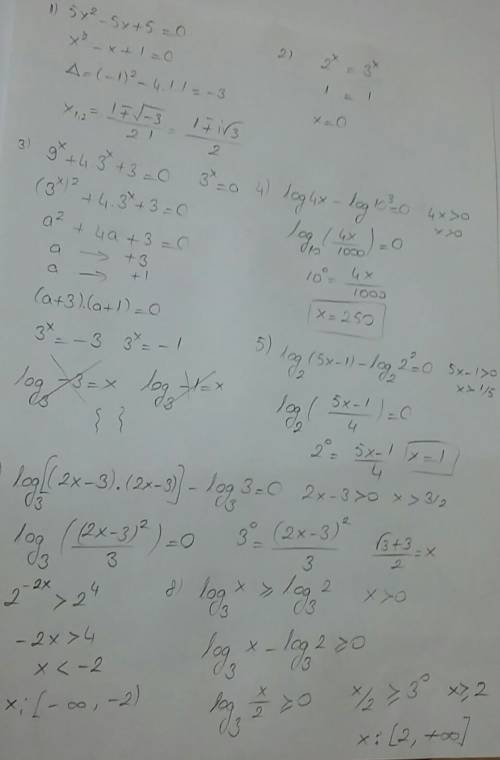 1) 5x² - 5x + 5 = 0
x² - x + 1 = 0
Δ = (-1)² - 4.1.1 = -3
x₁,₂ = (1∓√-3)/(2.1) = (1∓i√3)/2
2) 2ˣ = 3ˣ
1 = 1
x = 0
3) 9ˣ + 4.3ˣ + 3 = 0 3ˣ = a
(3ˣ)² + 4.3ˣ + 3 = 0
a² + 4a + 3 = 0
a → +3
a → +1
(a+3).(a+1) = 0
3ˣ = -3 3ˣ = -1
log₃ -3 = x log₃ -1 = x
{ }
4) log4x - log10³ = 0 4x>0
x>0
log₁₀(4x/1000) = 0
10⁰ = 4x/1000
x = 250
5) log₂(5x-1) - log₂2² = 0 5x-1>0
x>1/5
log₂((5x-1)/4) = 0
2⁰ = (5x-1)/4 x = 1
) log₃[(2x-3).(2x-3)] - log₃3 = 0 2x-3>0 x>3/2
log₃((2x-3)²/3) = 0 3⁰ = (2x-3)²/3 (√3+3)/2 = x
2⁻²ˣ > 2⁴
-2x > 4
x < -2
x: [-∞, -2)
8) log₃x ≥ log₃2 x>0
log₃x - log₃2 ≥ 0
log₃ x/2 ≥ 0 x/2 ≥ 3⁰ x≥2
x: [2, +∞]